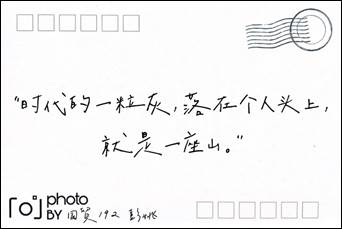 “时代的一粒灰，落在个人头上，
就是一座山。”
「o」photo
BY 国贸192